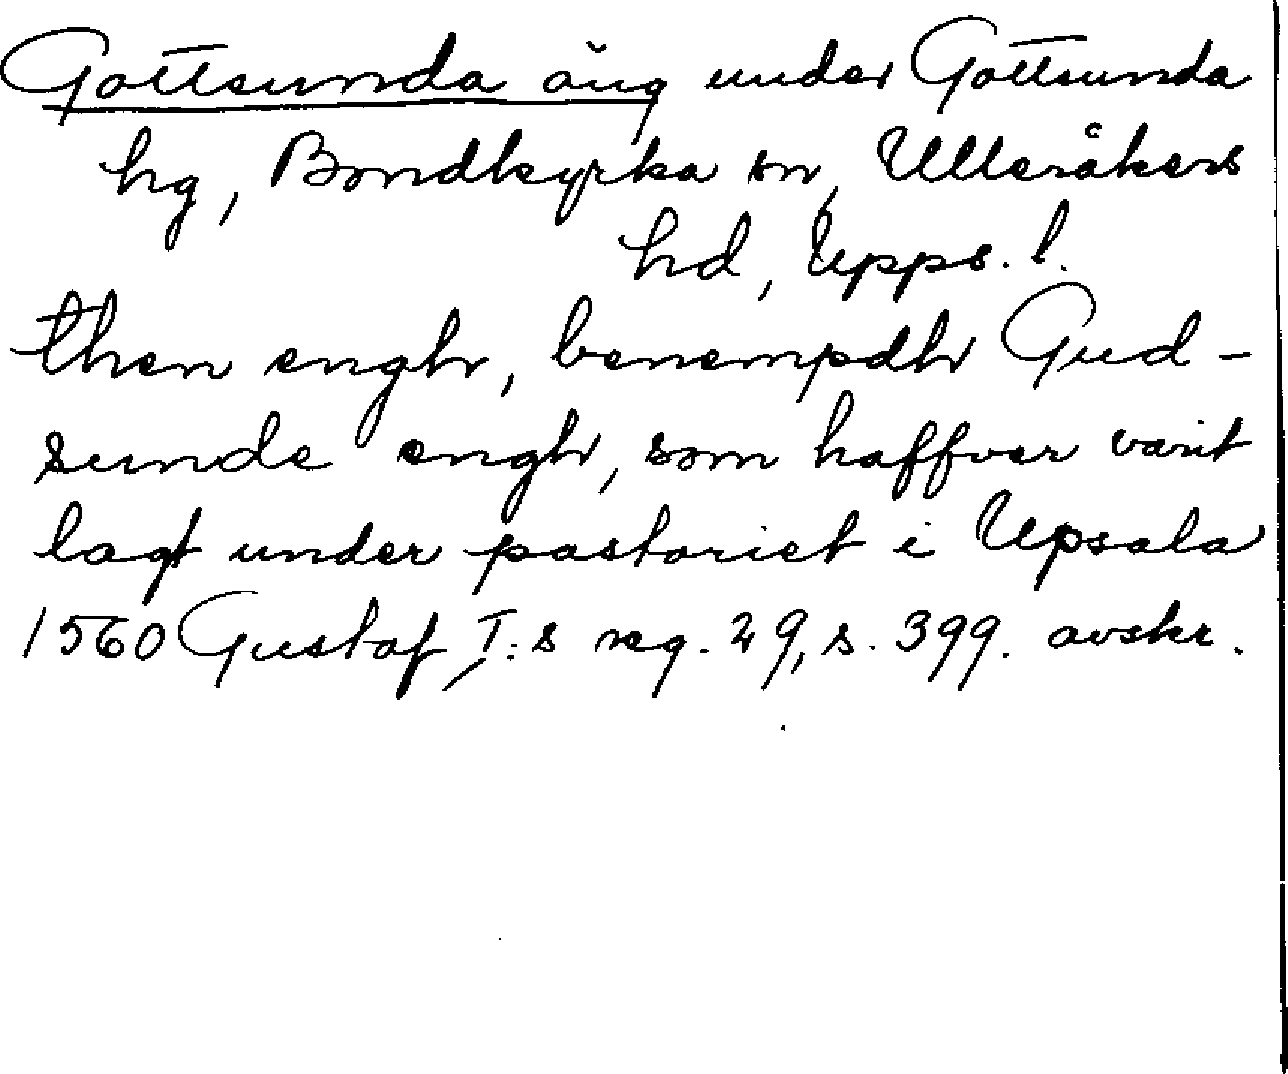 Gottsunda äng under Gottsunda
hg, Bondkyrka sn, Ulleråkers
hd, Upps. l.
then engh, benempdh Gud-
sunde engh, som haffver varit
lagt under pastoriet i Upsala
1560 Gustaf I:s reg. 29, s. 399. avskr.